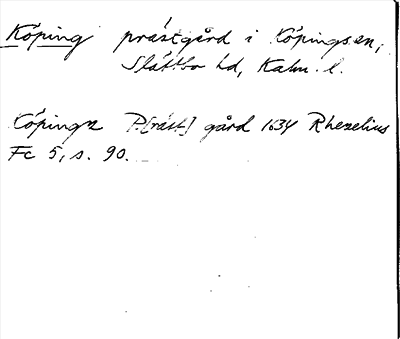 Köping prästgård i Köpings sn,
Slättbo hd, Kalm. l.
Köpings P[räst] gård 1634 Rhezelius
Fc 5, s. 90.